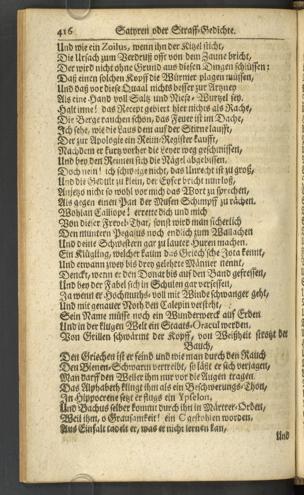 416 Satyren oder Straff-Gedichte.
Und wie ein Zoilus, wenn ihn der Kitzel sticht,
Die Ursach zum Verdruß offt von dem Zaune bricht,
Der wird nicht ohne Grund aus diesen Dingen schlüssen:
Daß einen solchen Kopff die Würmer plagen müssen,
Und daß vor diese Quaal nichts besser zur Artzney
Als eine Hand voll Saltz und Niese-Wurtzel sey.
Halt inne! das Recept gebiert hier nichts als Rache,
Die Berge rauchen schon, das Feuer ist im Dache,
Ich sehe, wie die Laus dem auf der Stirne laufft,
Der zur Apologie ein Reim-Register kaufft,
Nachdem er kurtz vorher die Leyer weg geschmissen,
Und bey den Reimen sich die Nägel abgebissen.
Doch nein! ich schweige nicht, das Unrecht ist zu groß,
Und die Gedult zu klein, der Eyfer bricht nun loß,
Anjetzo nicht so wohl vor mich das Wort zu sprechen,
Als gegen einen Pan der Musen Schimpff zu rächen.
Wohlan Calliope! errette dich und mich
Von dieser Frevel-That, sonst wird man sicherlich
Den muntern Pegasus noch endlich zum Wallachen
Und deine Schwestern gar zu lauter Huren machen.
Ein Klügling, welcher kaum das Griech'sche Jota kennt,
Und etwann zwey bis drey gelehrte Männer nennt,
Denckt, wenn er den Donat bis auf den Band gefressen,
Und bey der Fabel sich in Schulen gar versessen,
Ja wenn er Hochmuths-voll mit Winde schwanger geht,
Und mit genauer Noth den Calepin versteht,
Sein Name müsse noch ein Wunderwerck auf Erden
Und in der klugen Welt ein Staats-Oracul werden.
Von Grillen schwärmt der Kopff, von Weißheit strotzt der
Bauch,
Den Griechen ist er feind und wie man durch den Rauch
Den Bienen-Schwarm vertreibt, so läßt er sich verjagen,
Man darff den Weller ihm nur vor die Augen tragen.
Das Alphabeth klingt ihm als ein Beschwerungs-Thon,
In Hippocrene setzt er flugs ein Ypsilon,
Und Bachus selber kommt durch ihn in Märtrer-Orden,
Weil ihm, o Grausamkeit! ein C gestohlen worden.
Aus Einfalt tadelt er, was er nicht lernen kan,
Und